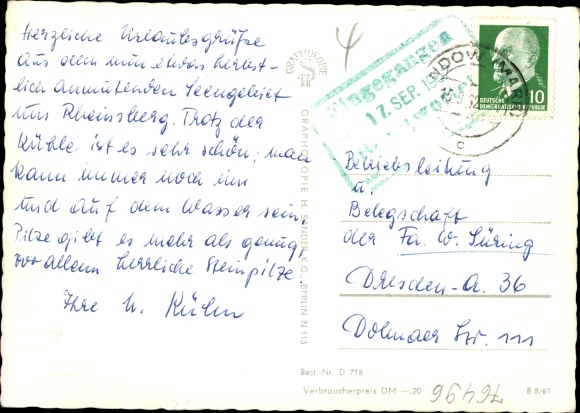 Herzliche Urlaubsgrüße
aus dem nun etwas herbst-
lich anmutenden Seengebiet
um Rheinsberg. Trotz der
Kühle ist es sehr schön; man
kann immer noch im
und auf dem Wasser sein
Pilze gibt es mehr als genug,
vor allem herrliche Steinpilze
Ihre U. Kühn
GRAPHOKOPIE
GRAPHOKOPIE H. SANDER K.G., BERLIN N 113
Eingegangen
17. SEP. 196
NDOW (MARK)
DEUTSCHE
DEMOKRATISCHE REPUBLIK
10
Betriebsleitung
u.
Belegschaft
der Fa. W. Süring
Dresden-A. 36
Dohnaer Str. 111
Best.-Nr. D 718
Verbraucherpreis DM —,20
B 8/61
76496